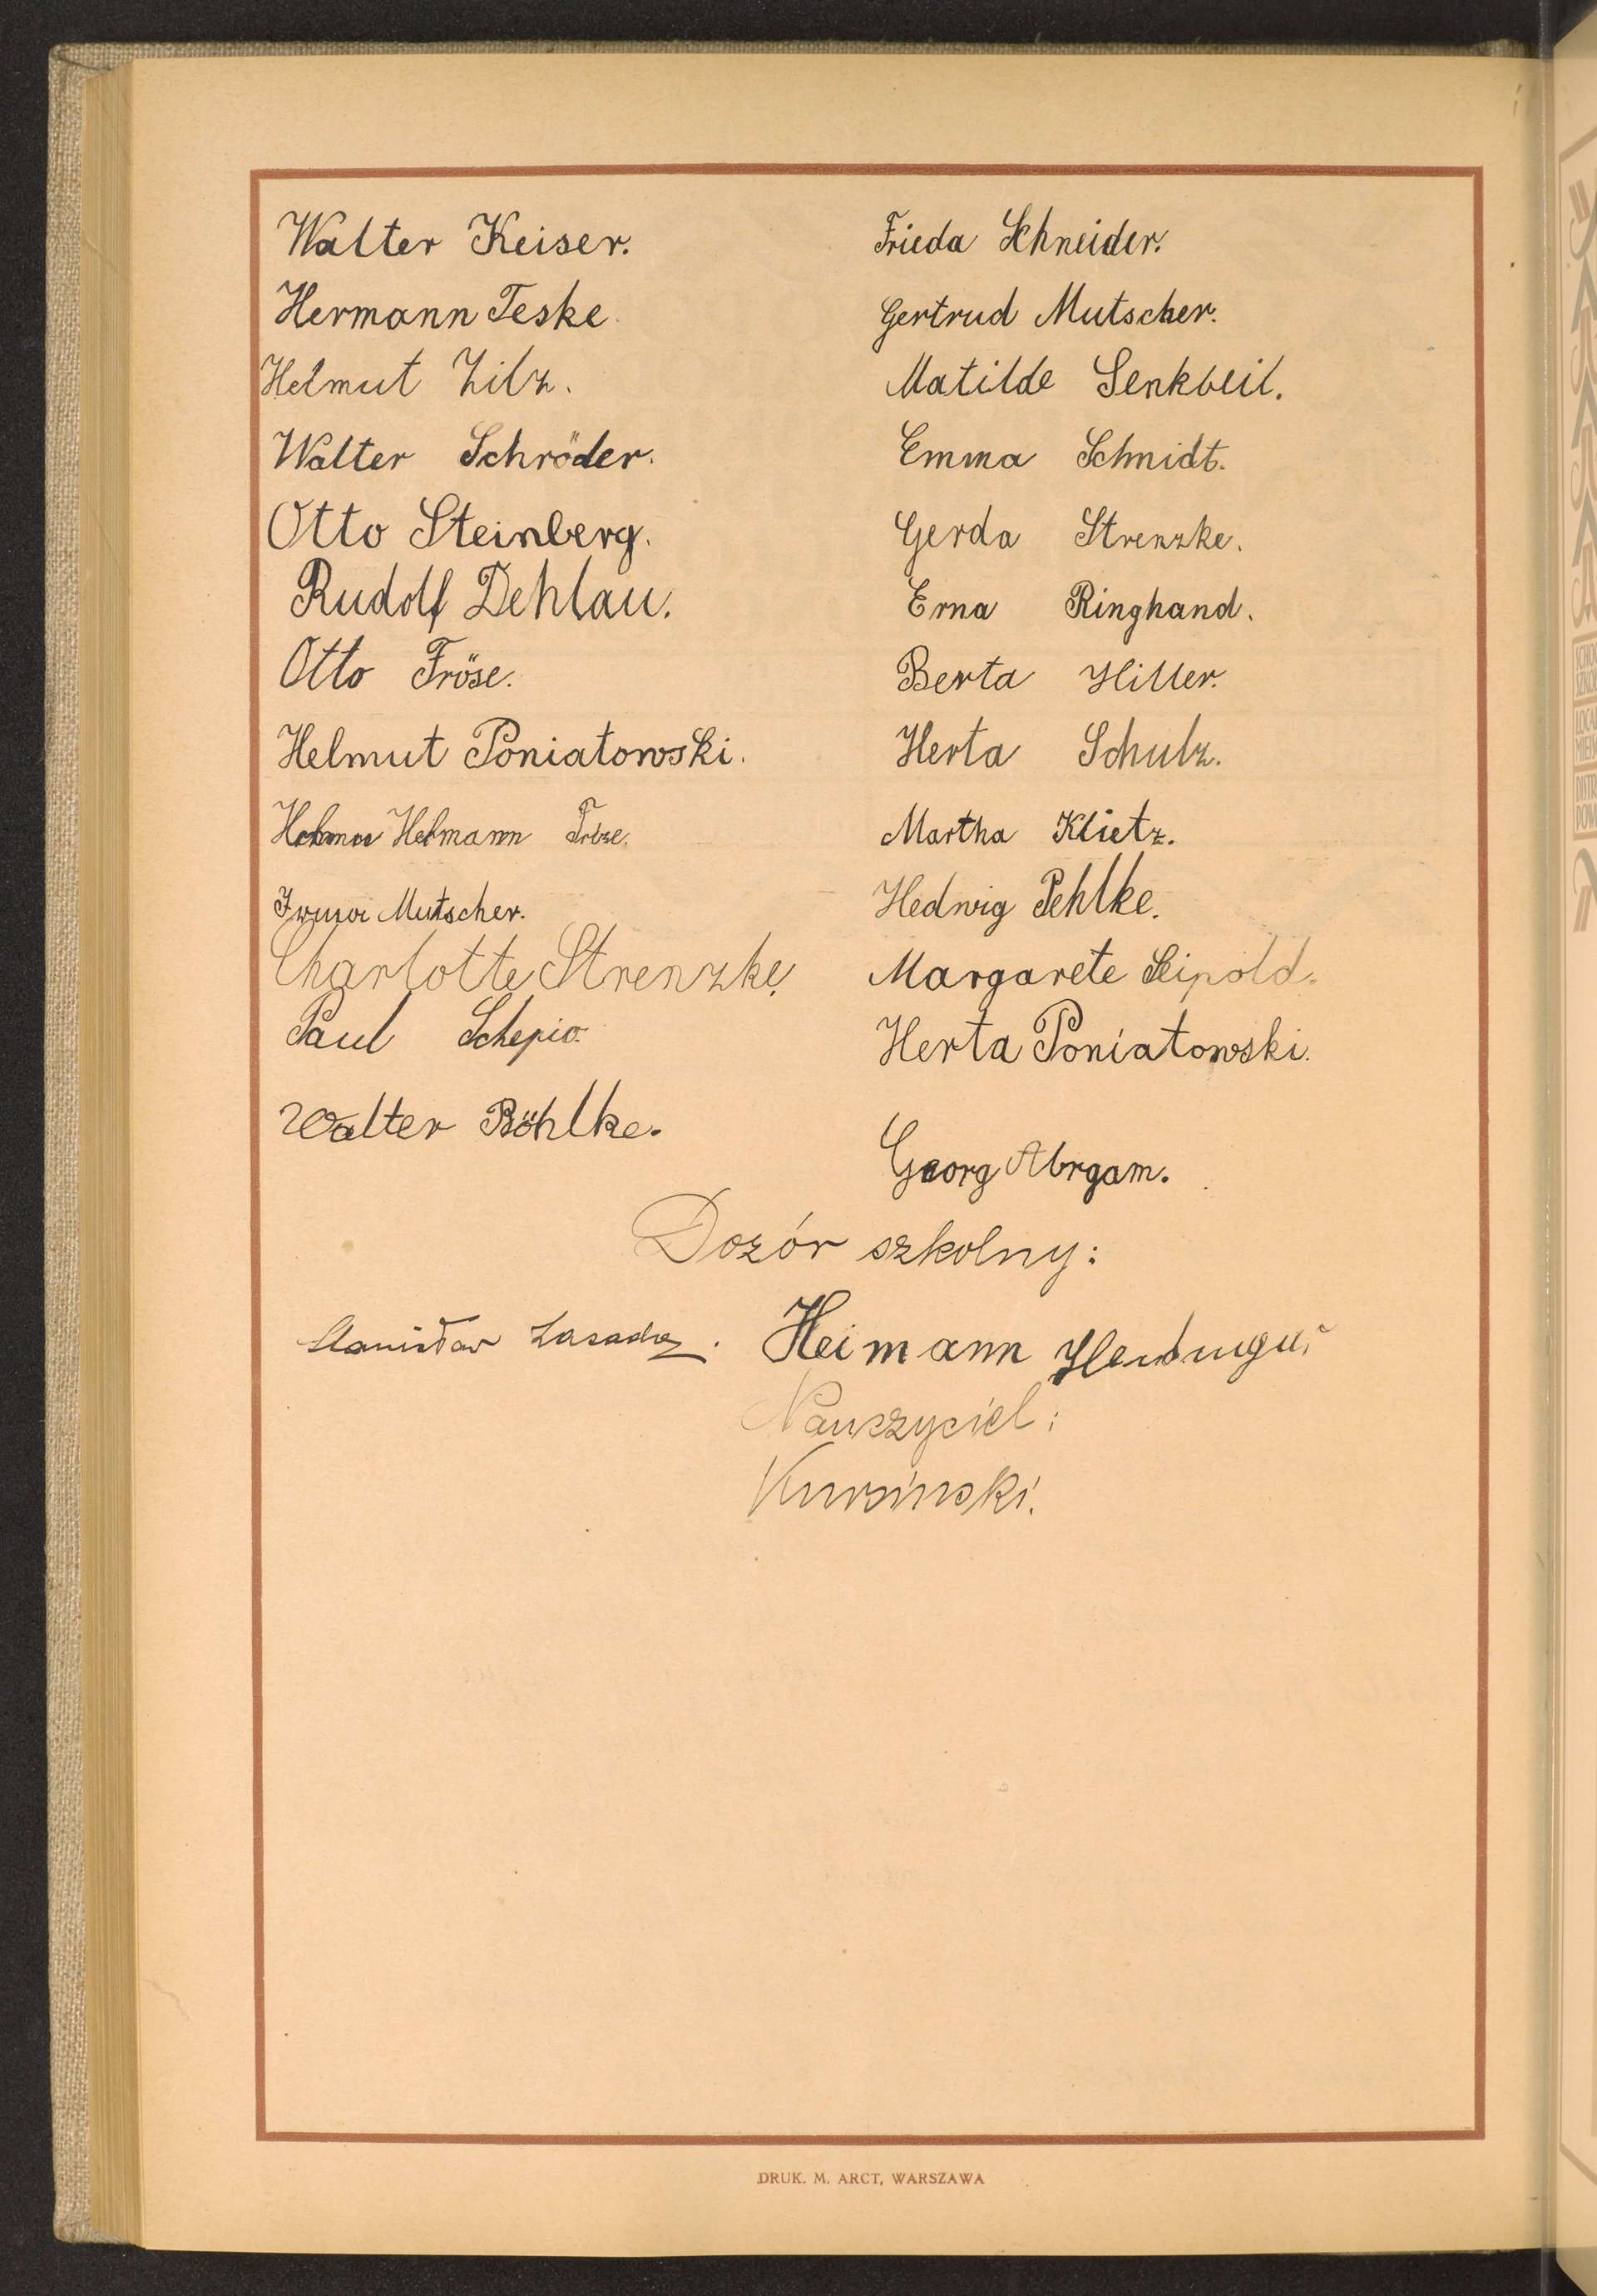 Walter Keiser.
Hermann Teske.
Helmut Zilz.
Walter Schröder.
Otto Steinberg.
Rudolf Dehlau.
Otto Fröse.
Helmut Poniatowski.
Helmann
Mutscher.
Charlotte Strenzke.
Paul Schepio
Walter Böhlke.
Frieda Schneider.
Gertrud Mutscher.
Matilde Senkbeil.
Emma Schmidt.
Gerda Strenzke.
Erna Ringhand.
Berta Hiller.
Herta Schulz.
Martha Klietz.
Hedwig Pehlke.
Margarete Leipold.
Herta Poniatowski.
Georg Abrgam.
Dozór szkolny:
Stanisław Zasada.
Heimann
Nauczyciel:
Kursinski.
DRUK. M. ARCT, WARSZAWA